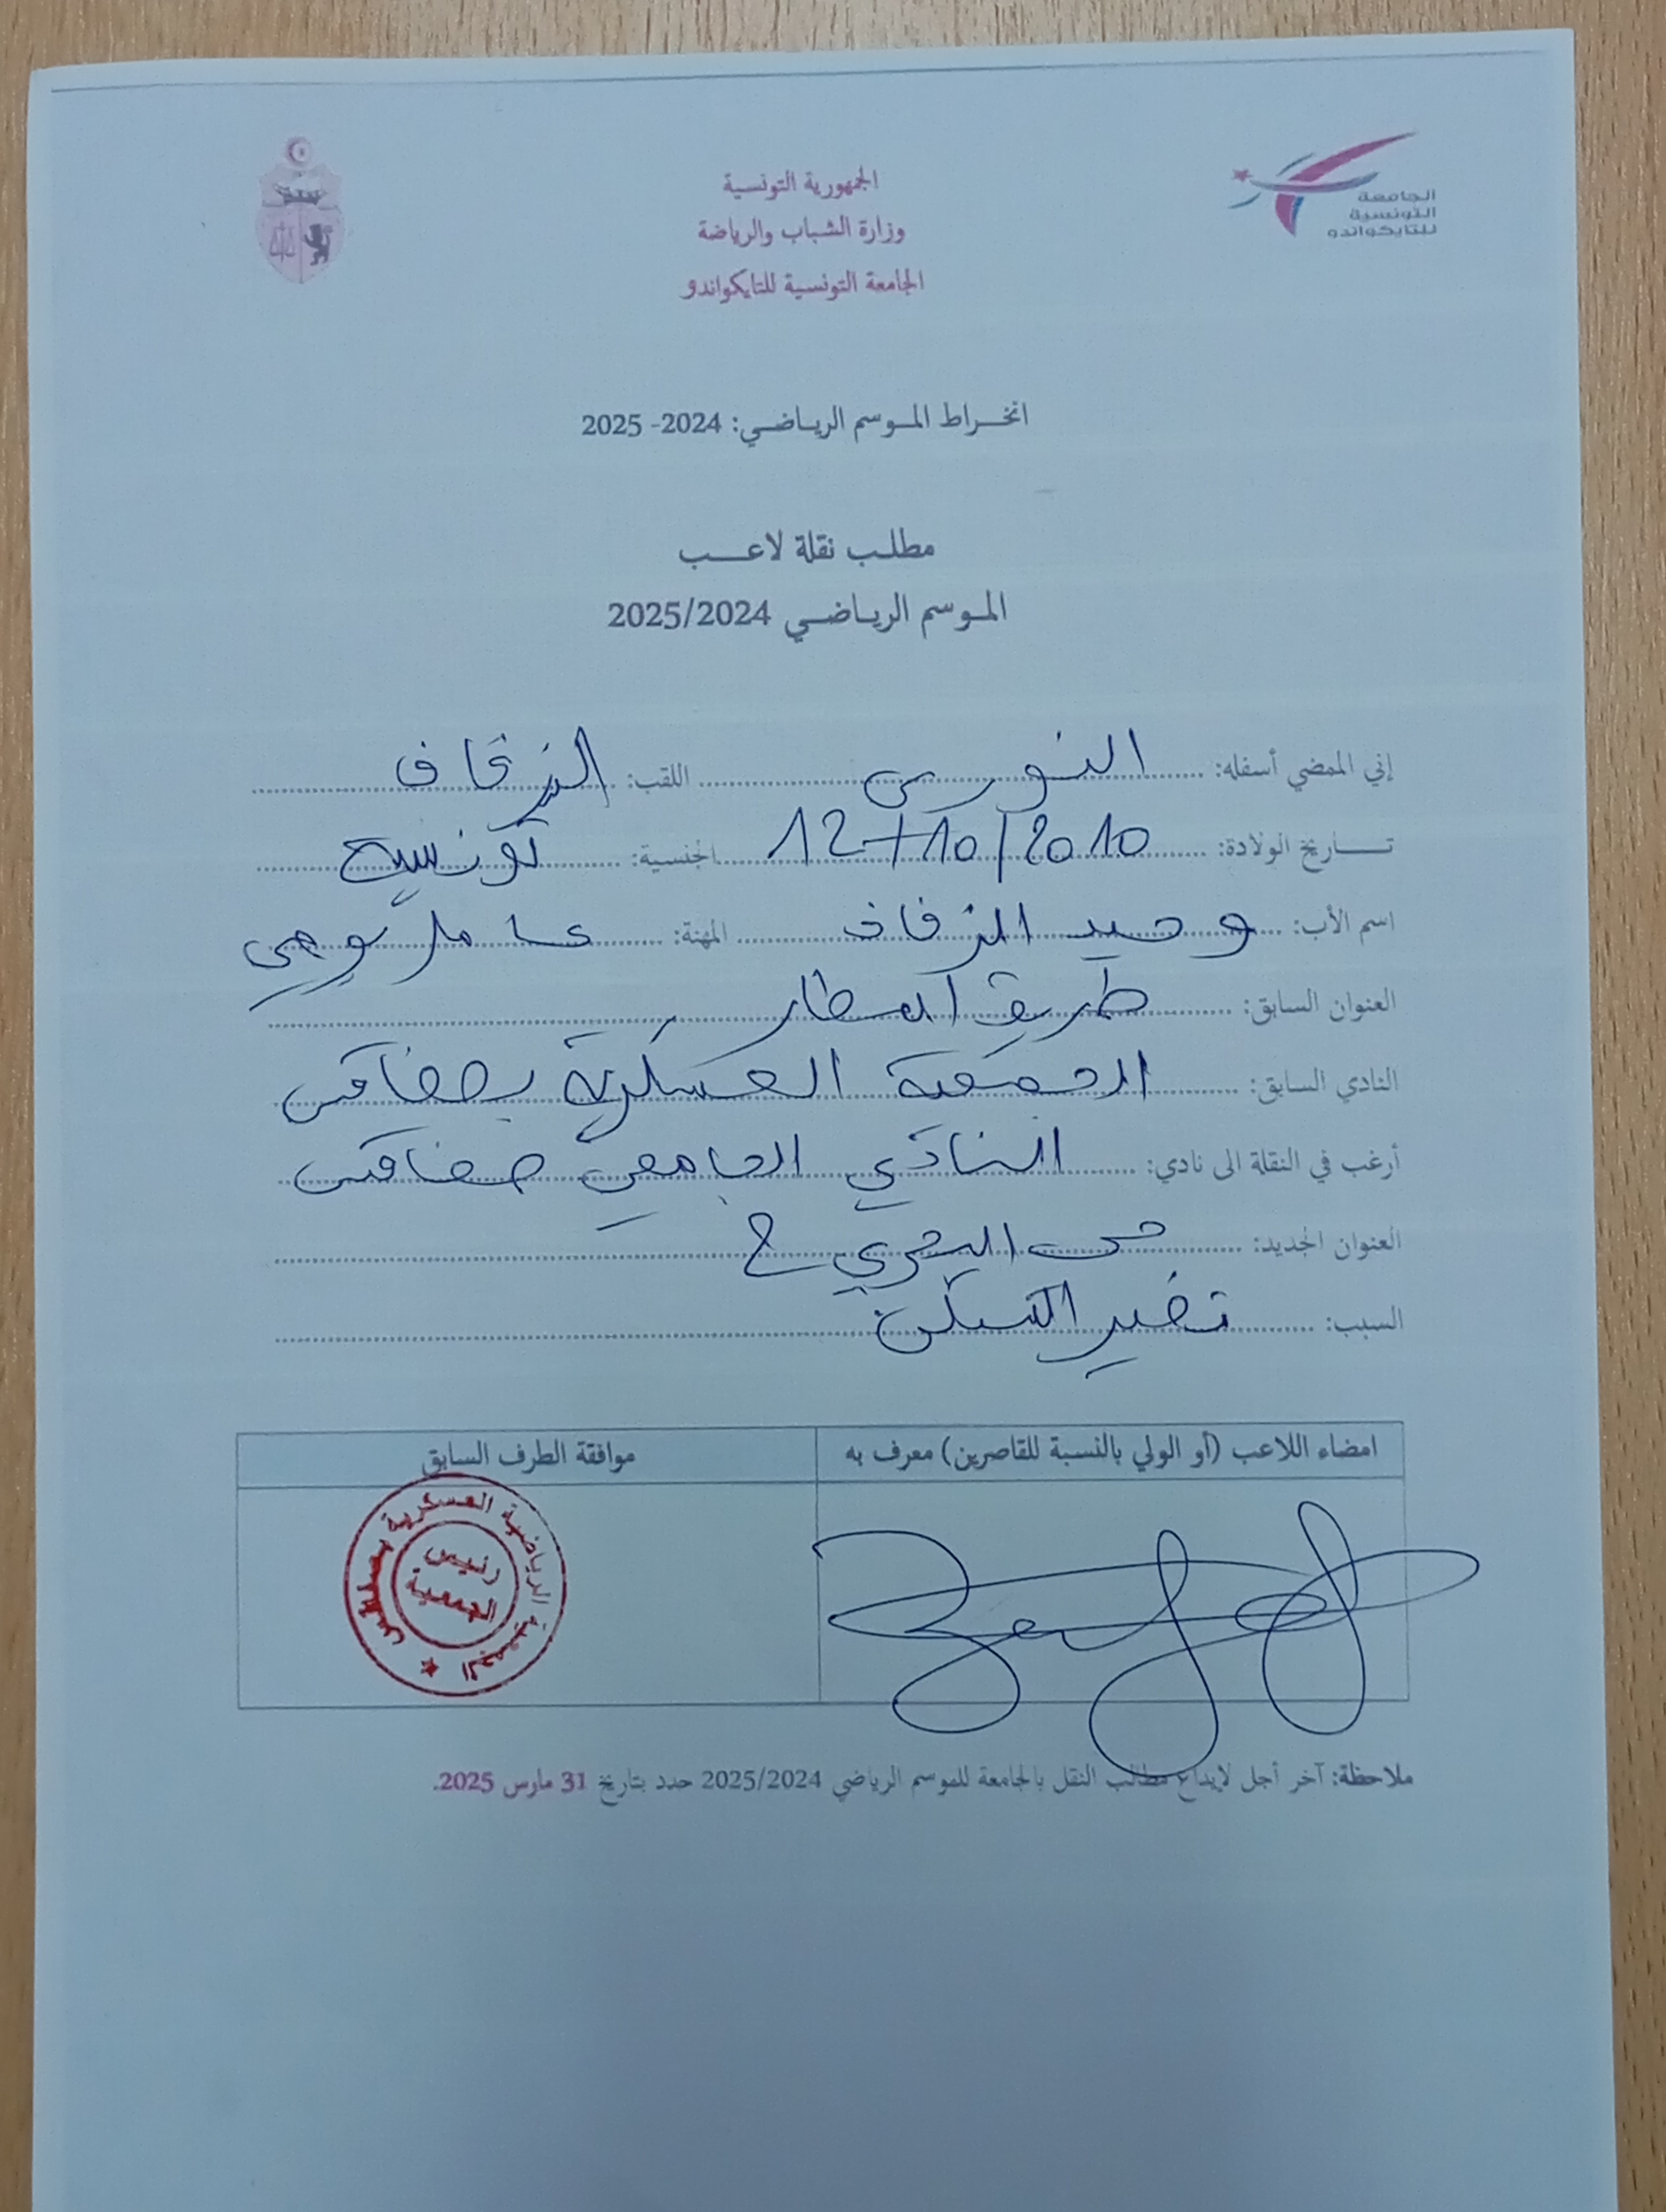 الجامعة
التونسية
للتايكواندو
الجمهورية التونسية
وزارة الشباب والرياضة
الجامعة التونسية للتايكواندو
انخراط الموسم الرياضي: 2024- 2025
مطلب نقلة لاعب
الموسم الرياضي 2025/2024
إني الممضي أسفله: النوري اللقب: الزفاف
تاريخ الولادة: 12/10/2010 الجنسية: تونسية
اسم الأب: وحيد الزفاف المهنة: عامل يومي
العنوان السابق: طريق المطار
النادي السابق: الجمعية العسكرية بصفاقس
أرغب في النقلة الى نادي: النادي الجامعي صفاقس
العنوان الجديد: حي البحري 2
السبب: تغير السكن
امضاء اللاعب (أو الولي بالنسبة للقاصرين) معرف به
موافقة الطرف السابق
الجمعية الرياضية العسكرية بصفاقس
رئيس
الجمعية
ملاحظة: آخر أجل لإيداع مطالب النقل بالجامعة للموسم الرياضي 2025/2024 حدد بتاريخ 31 مارس 2025.